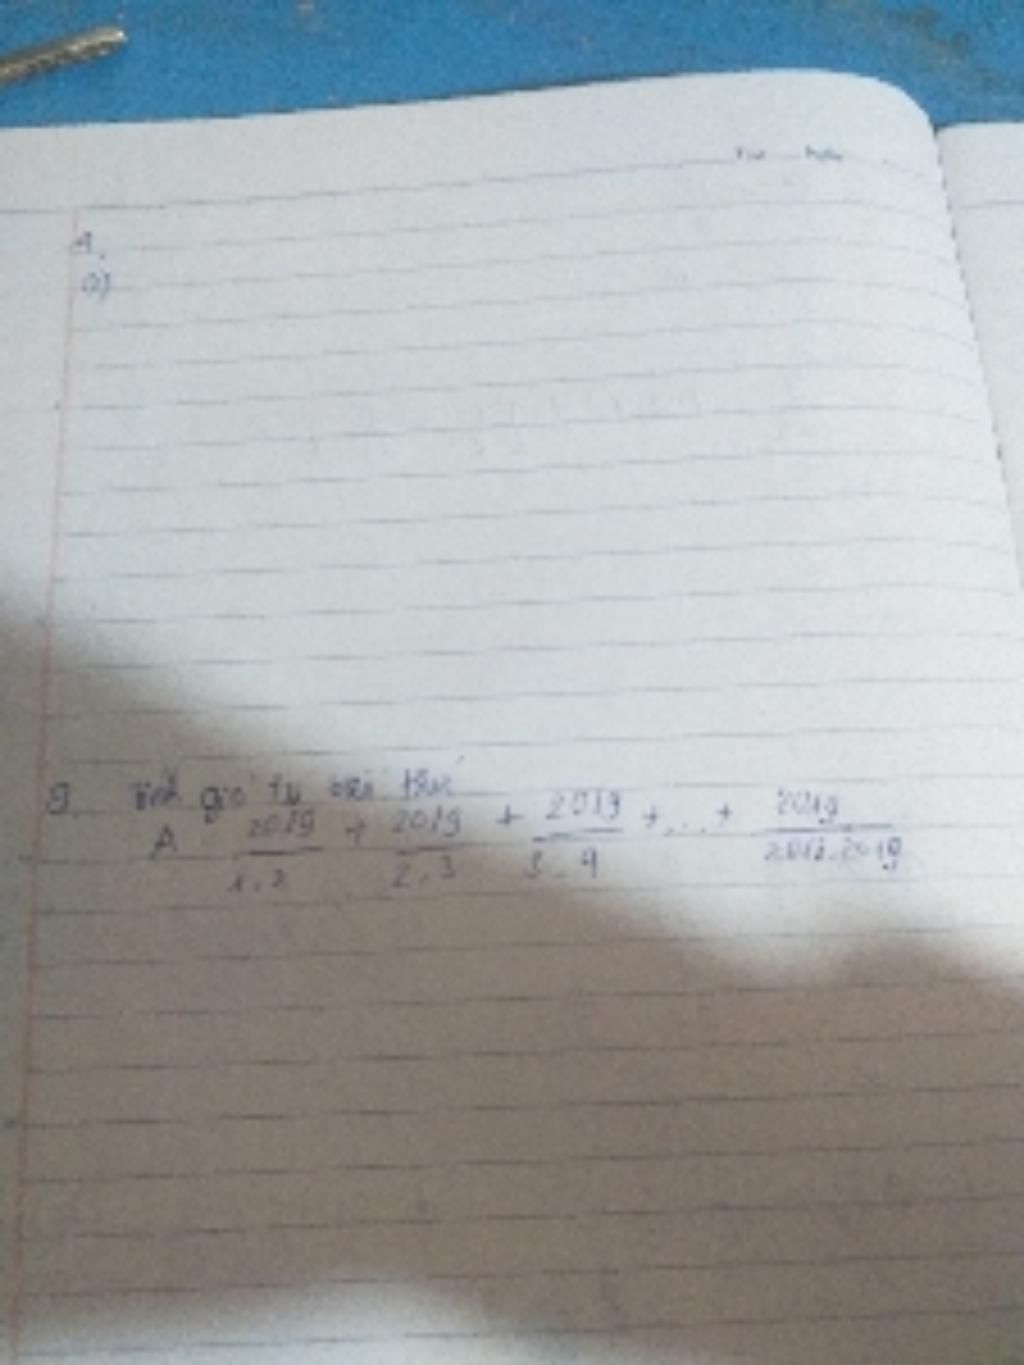 A.
a)
9. Tính giá trị biểu thức
A = 2019/1.2 + 2019/2.3 + 2019/3.4 + ... + 2019/2018.2019